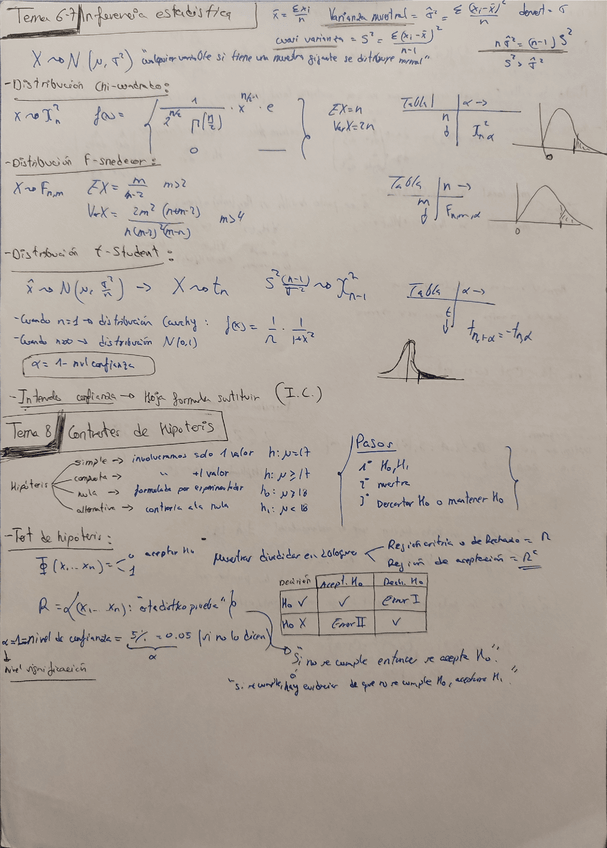 Tema 6-7 Inferencia estadística
x̄ = Σxi/n   Varianza muestral = σ̂² = Σ(xi-x̄)²/n   desvet = σ
cuasi varianza = S² = Σ(xi-x̄)²/n-1   nσ̂² = (n-1)S²
S² > σ̂²
X ~ N(μ, σ²) "cualquier variable si tiene una muestra gigante se distribuye normal"
-Distribución Chi-cuadrado:
f(x) = { 1/(2^(n/2) Γ(n/2)) · x^(n/2-1) · e
0 —
EX = n
VarX = 2n
Tabla | α →
n ↓
-Distribución F-snedecor:
X ~ Fn,m   EX = m/n-2   m>2
VarX = 2m²(n+m-2)   m>4
Tabla | n →
m ↓ | Fn,m,α
-Distribución t-Student:
x̂ ~ N(μ, σ²/n) → X ~ tn   S²(n-1)/σ² ~ X²n-1
Tabla | α →
t ↓
-Cuando n=1 → distribución Cauchy: f(x) = 1/π · 1/1+x²
-Cuando n∞ → distribución N(0,1)
α = 1 - nvl confianza
-Intervalo confianza → Hoja formula sustituir (I.C.)
Tema 8 Contrastes de hipotesis
Hipótesis
simple → involucramos solo 1 valor   h: μ=17
compuesta → " +1 valor   h: μ≥17
nula → formulada por experimentador   h0: μ≥18
alternativa → contraria a la nula   h1: μ<18
Pasos
1º H0, H1
2º muestra
3º Descartar H0 o mantener H0
-Test de hipotesis:
Φ(x1...xn) = 0 aceptar H0
1
muestras divididas en 2 grupos
Región critica o de Rechazo = R
Región de aceptación = Rᶜ
Decisión | Acept. H0 | Rech. H0
H0 ✓ | ✓ | Error I
H0 X | Error II | ✓
R = {(x1,... xn): "estadístico prueba"
α=1=nivel de confianza = 5% = 0.05 (si no lo dicen)
α
nivel significación
"Si no se cumple entonces se acepta H0."
ó
"si se cumple, hay evidencias de que no se cumple H0, aceptase H1."